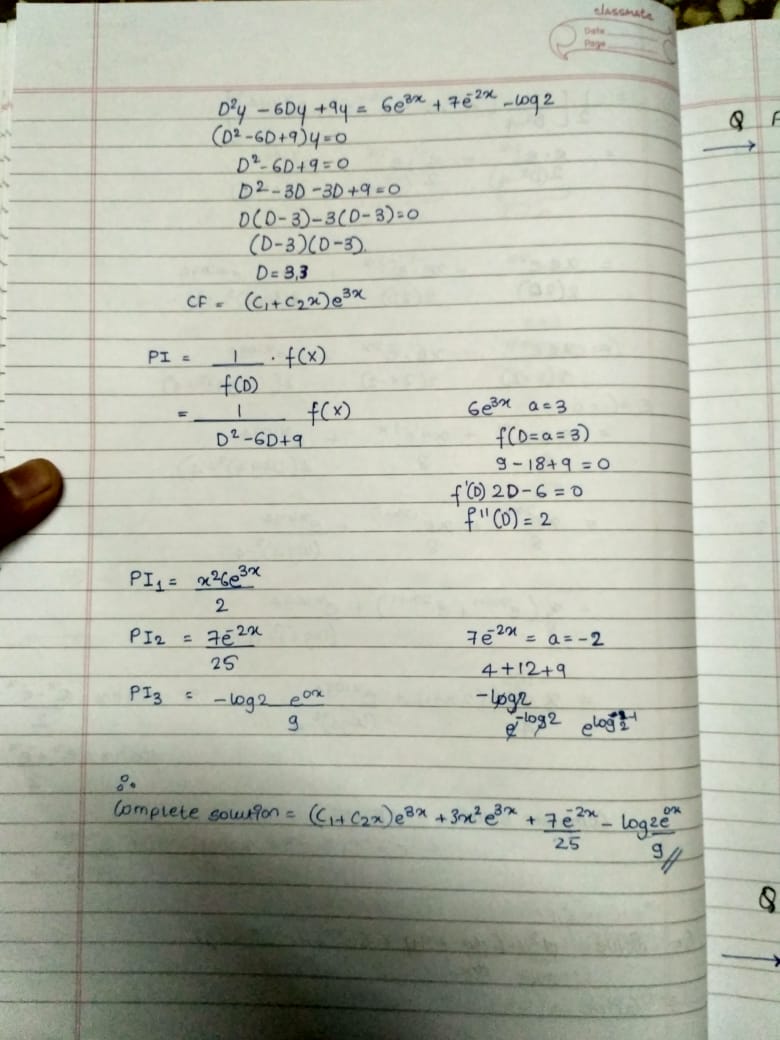 classmate
Date
Page
D²y - 6Dy + 9y = 6e^3x + 7e^-2x - log2
(D² - 6D + 9)y = 0
D² - 6D + 9 = 0
D² - 3D - 3D + 9 = 0
D(D-3) - 3(D-3) = 0
(D-3)(D-3).
D = 3,3
CF = (C₁ + C₂x)e^3x
PI = 1/f(D) · f(x)
= 1/(D² - 6D + 9) f(x)
6e^3x a = 3
f(D=a=3)
9 - 18 + 9 = 0
f'(D) 2D - 6 = 0
f''(D) = 2
PI₁ = x²6e^3x/2
PI₂ = 7e^-2x/25
7e^-2x = a = -2
4 + 12 + 9
PI₃ = -log2 e^0x/9
-log2
e^-log2
∴
Complete solution = (C₁ + C₂x)e^3x + 3x²e^3x + 7e^-2x/25 - log2e^0x/9 //
Q
Q